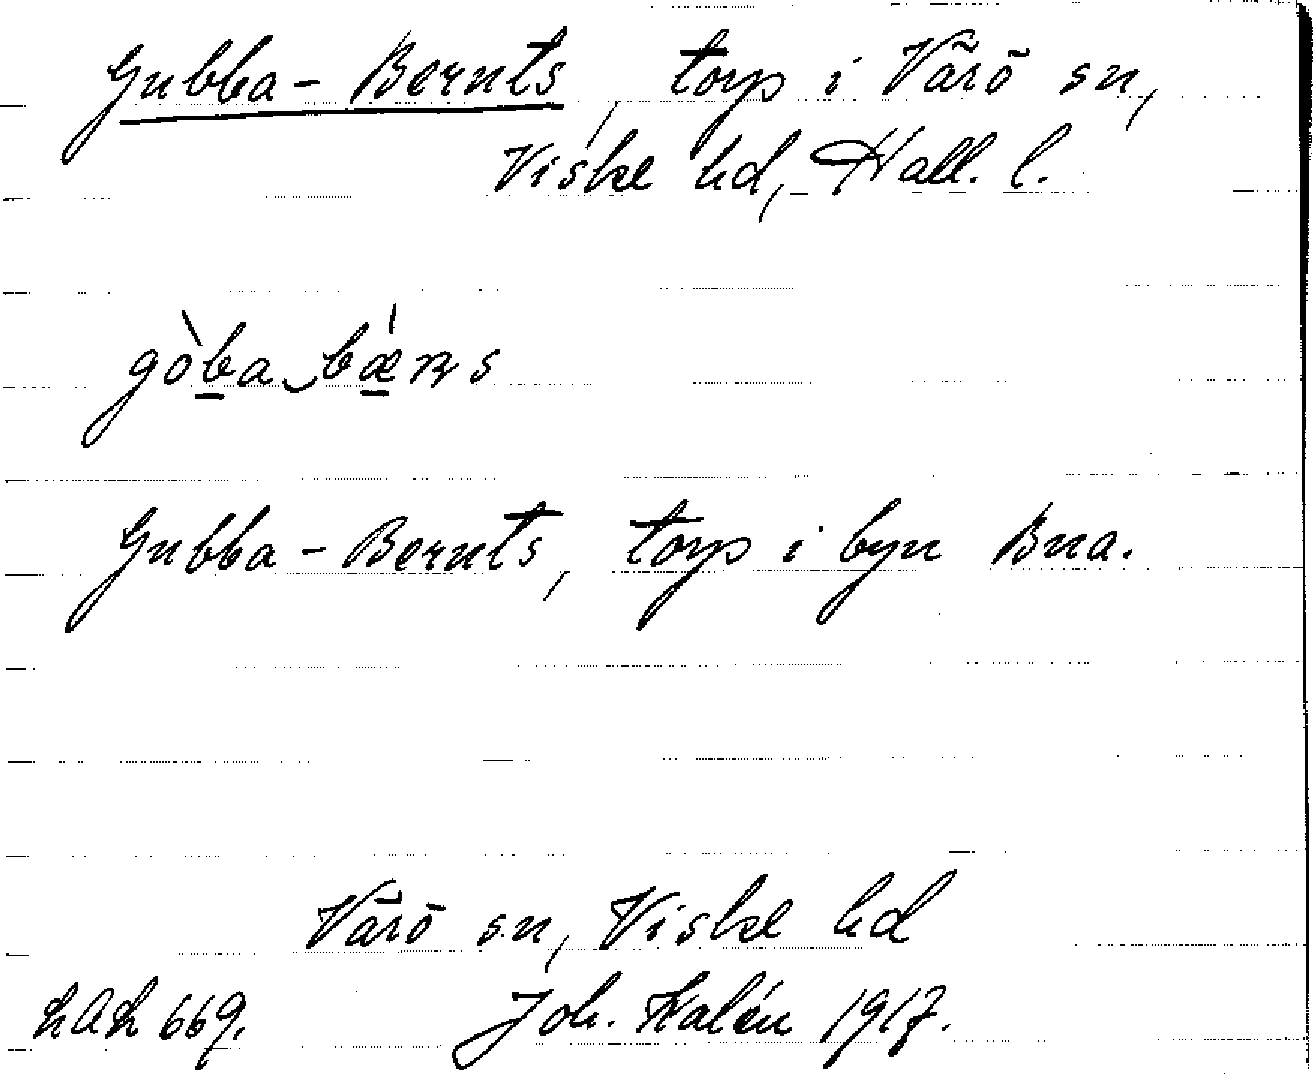 Gubba-Bernts, torp i Värö sn,
Viske hd, Hall. l.
gòba‿bǽrs
Gubba-Bernts, torp i byn Bua.
Värö sn, Viske hd
LAL 669. Joh. Kalén 1917.